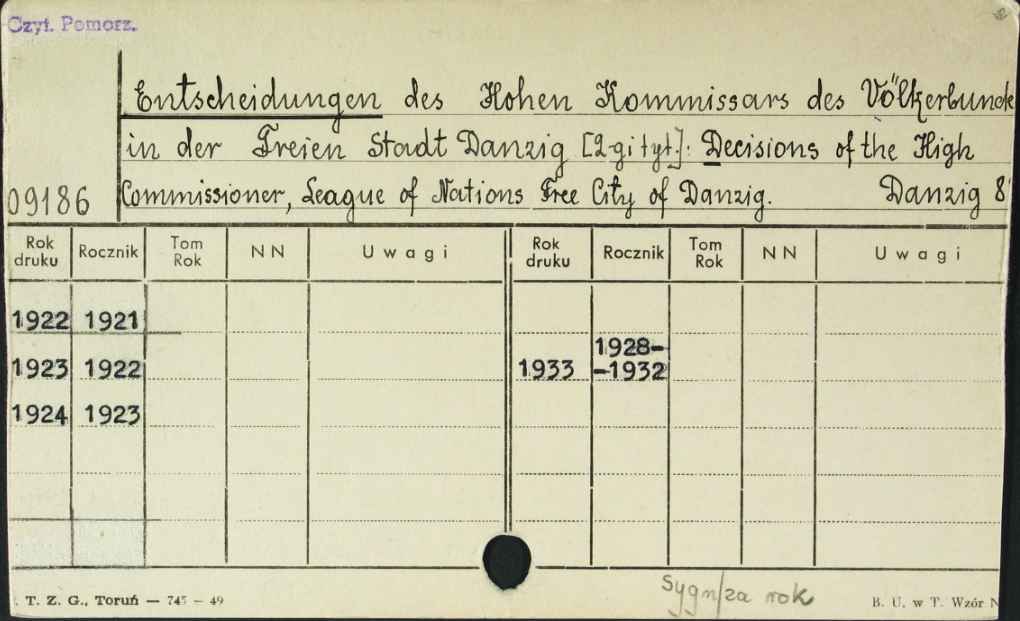 Czyt. Pomorz.
Entscheidungen des Hohen Kommissars des Völkerbunde
in der Freien Stadt Danzig [2-gi tyt.]: Decisions of the High
09186 Commissioner, League of Nations Free City of Danzig. Danzig 8°
Rok druku Rocznik Tom Rok NN Uwagi Rok druku Rocznik Tom Rok NN Uwagi
1922 1921
1928-
1923 1922 1933 -1932
1924 1923
Sygn/za rok
T. Z. G., Toruń — 745 — 49 B. U. w T. Wzór N